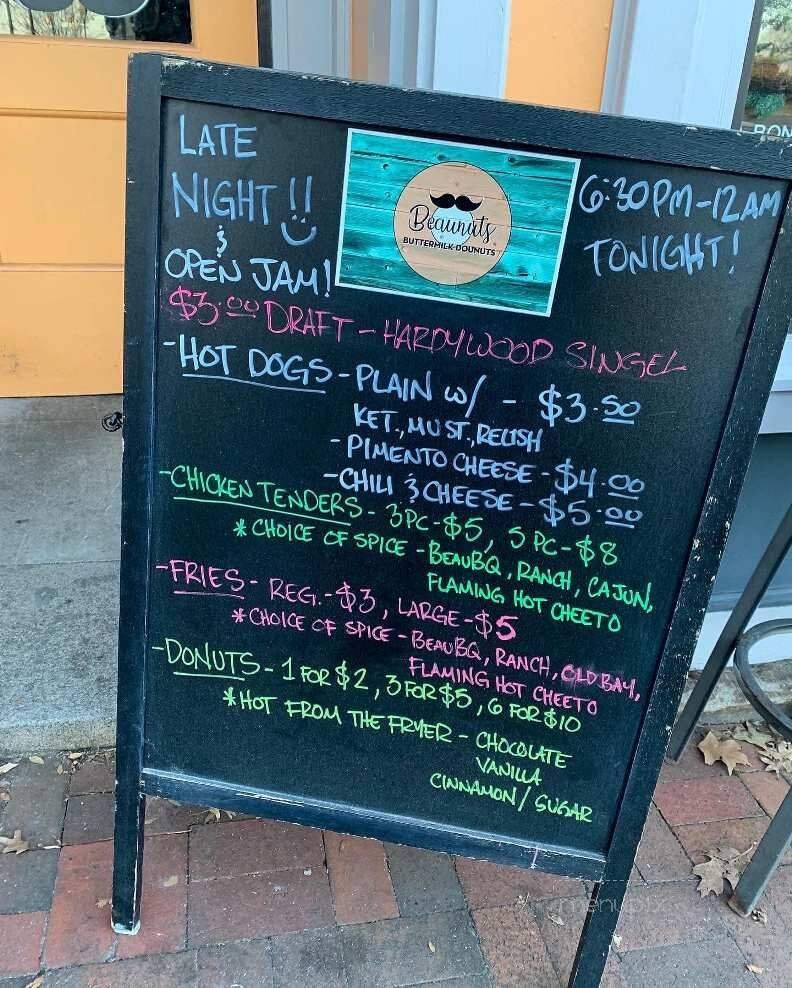 LATE
NIGHT !!
&
OPEN JAM!
Beaunuts
BUTTERMILK DOUNUTS
6:30PM-12AM
TONIGHT!
$3.00 DRAFT - HARDYWOOD SINGEL
-HOT DOGS - PLAIN w/ - $3.50
KET., MUST., RELISH
- PIMENTO CHEESE - $4.00
- CHILI & CHEESE - $5.00
-CHICKEN TENDERS - 3PC-$5, 5PC-$8
* CHOICE OF SPICE - BEAUBQ, RANCH, CAJUN,
FLAMING HOT CHEETO
-FRIES - REG.-$3, LARGE-$5
* CHOICE OF SPICE - BEAUBQ, RANCH, OLD BAY,
FLAMING HOT CHEETO
-DONUTS - 1 FOR $2, 3 FOR $5, 6 FOR $10
* HOT FROM THE FRYER - CHOCOLATE
VANILLA
CINNAMON/SUGAR